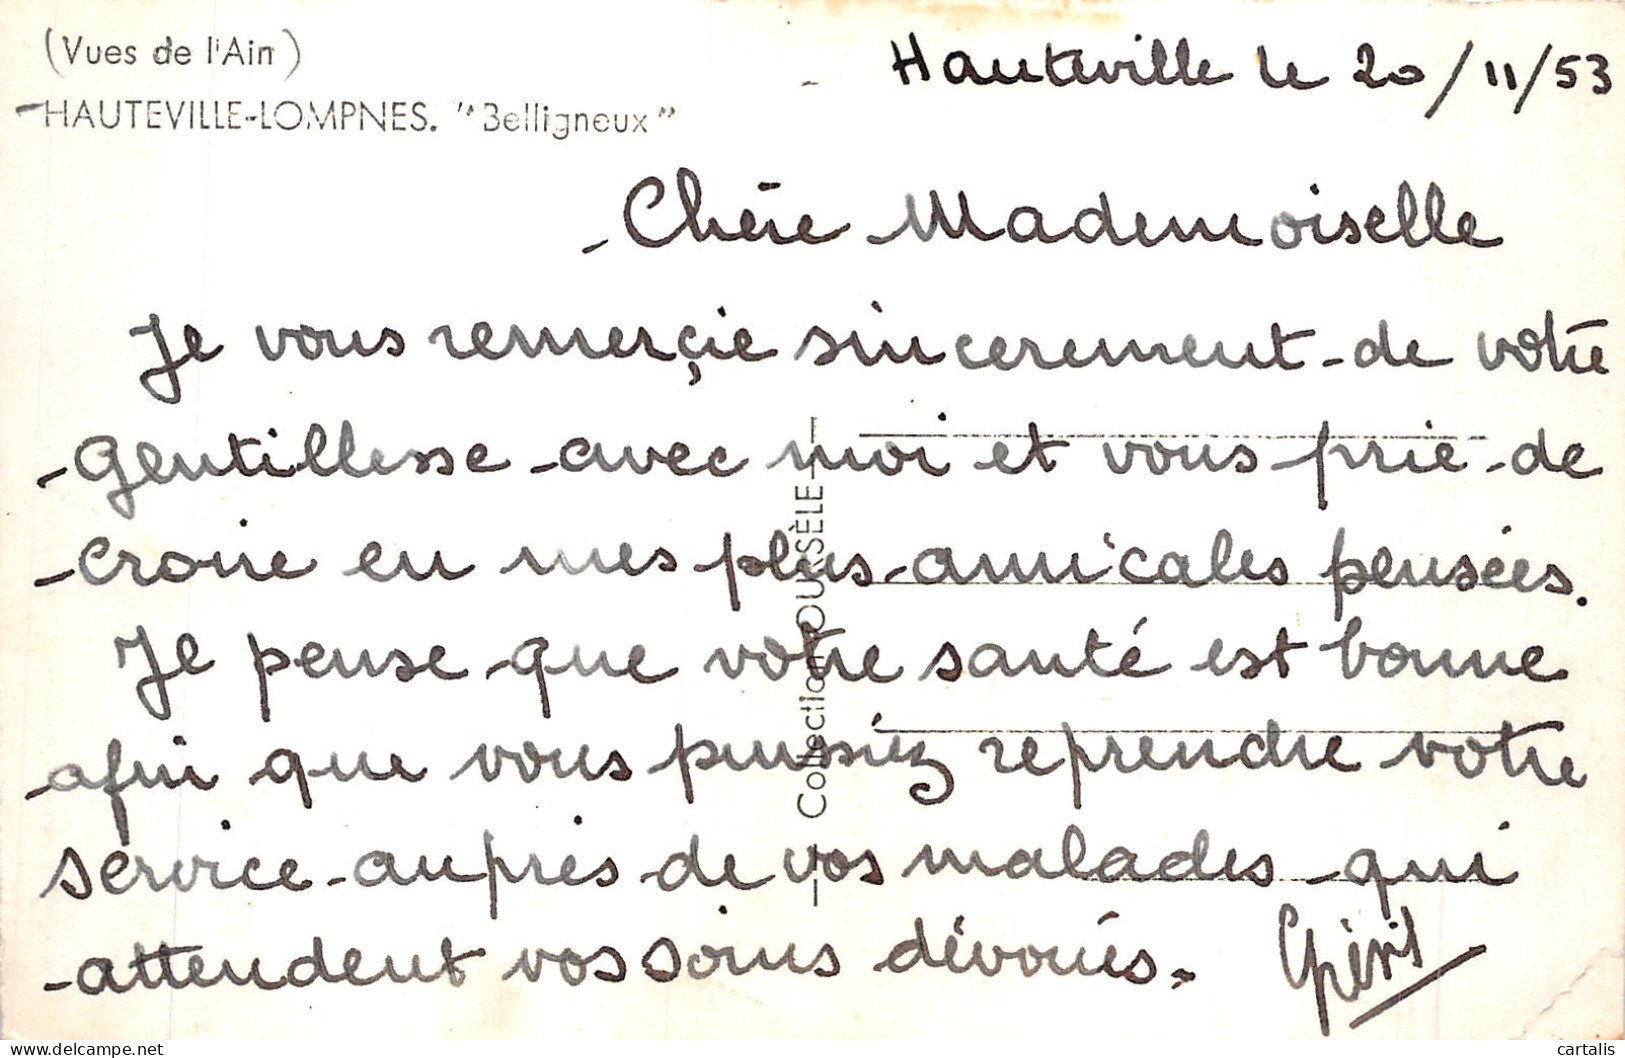 (Vues de l'Ain)
HAUTEVILLE-LOMPNES. "Belligneux"
Hauteville le 20/11/53
Chère Mademoiselle
Je vous remerçie sincerement de votre
gentillesse avec moi et vous prie de
croire en mes plus amicales pensées.
Je pense que votre santé est bonne
afin que vous puissiez reprendre votre
service auprès de vos malades qui
attendent vos soins dévoués.
Collection OURSÈLE
delcampe.net
cartalis